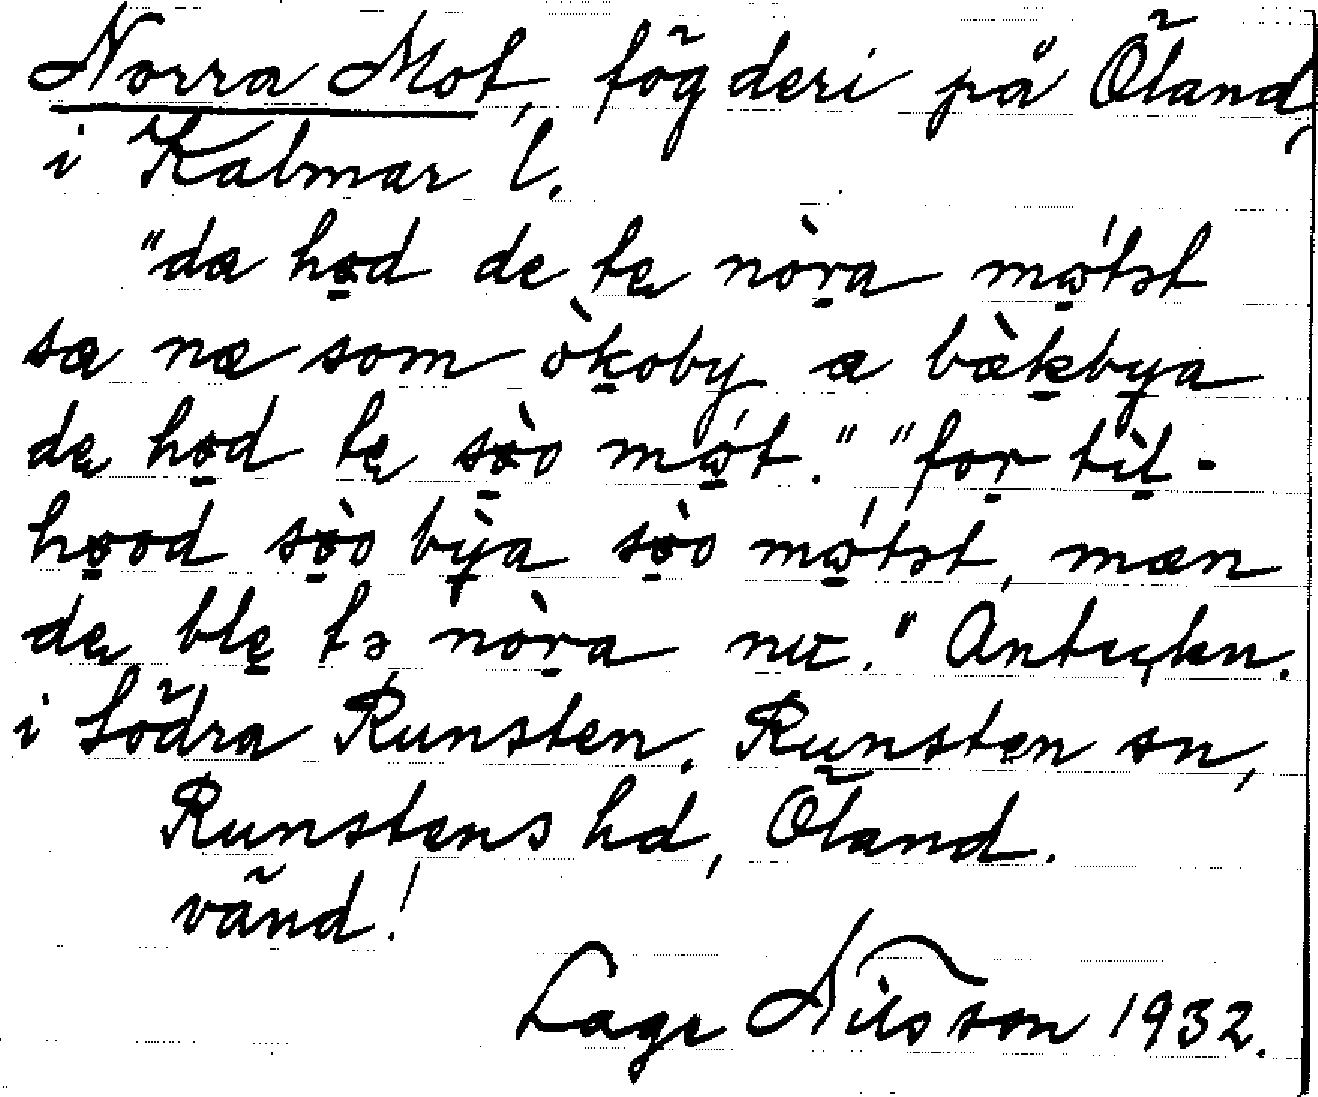 Norra Mot, fögderi på Öland,
i Kalmar l.
"dæ hөd de tę nòra mótət
sæ næ som òkoby æ bækbya
dę hөd tę sөo mót." "for tìl-
hөod sөo bỳa sөo mótət, mæn
dę blę tə nòra nu." Anteckn.
i Södra Runsten. Runsten sn,
Runstens hd, Öland.
vänd!
Lage Nilsson 1932.